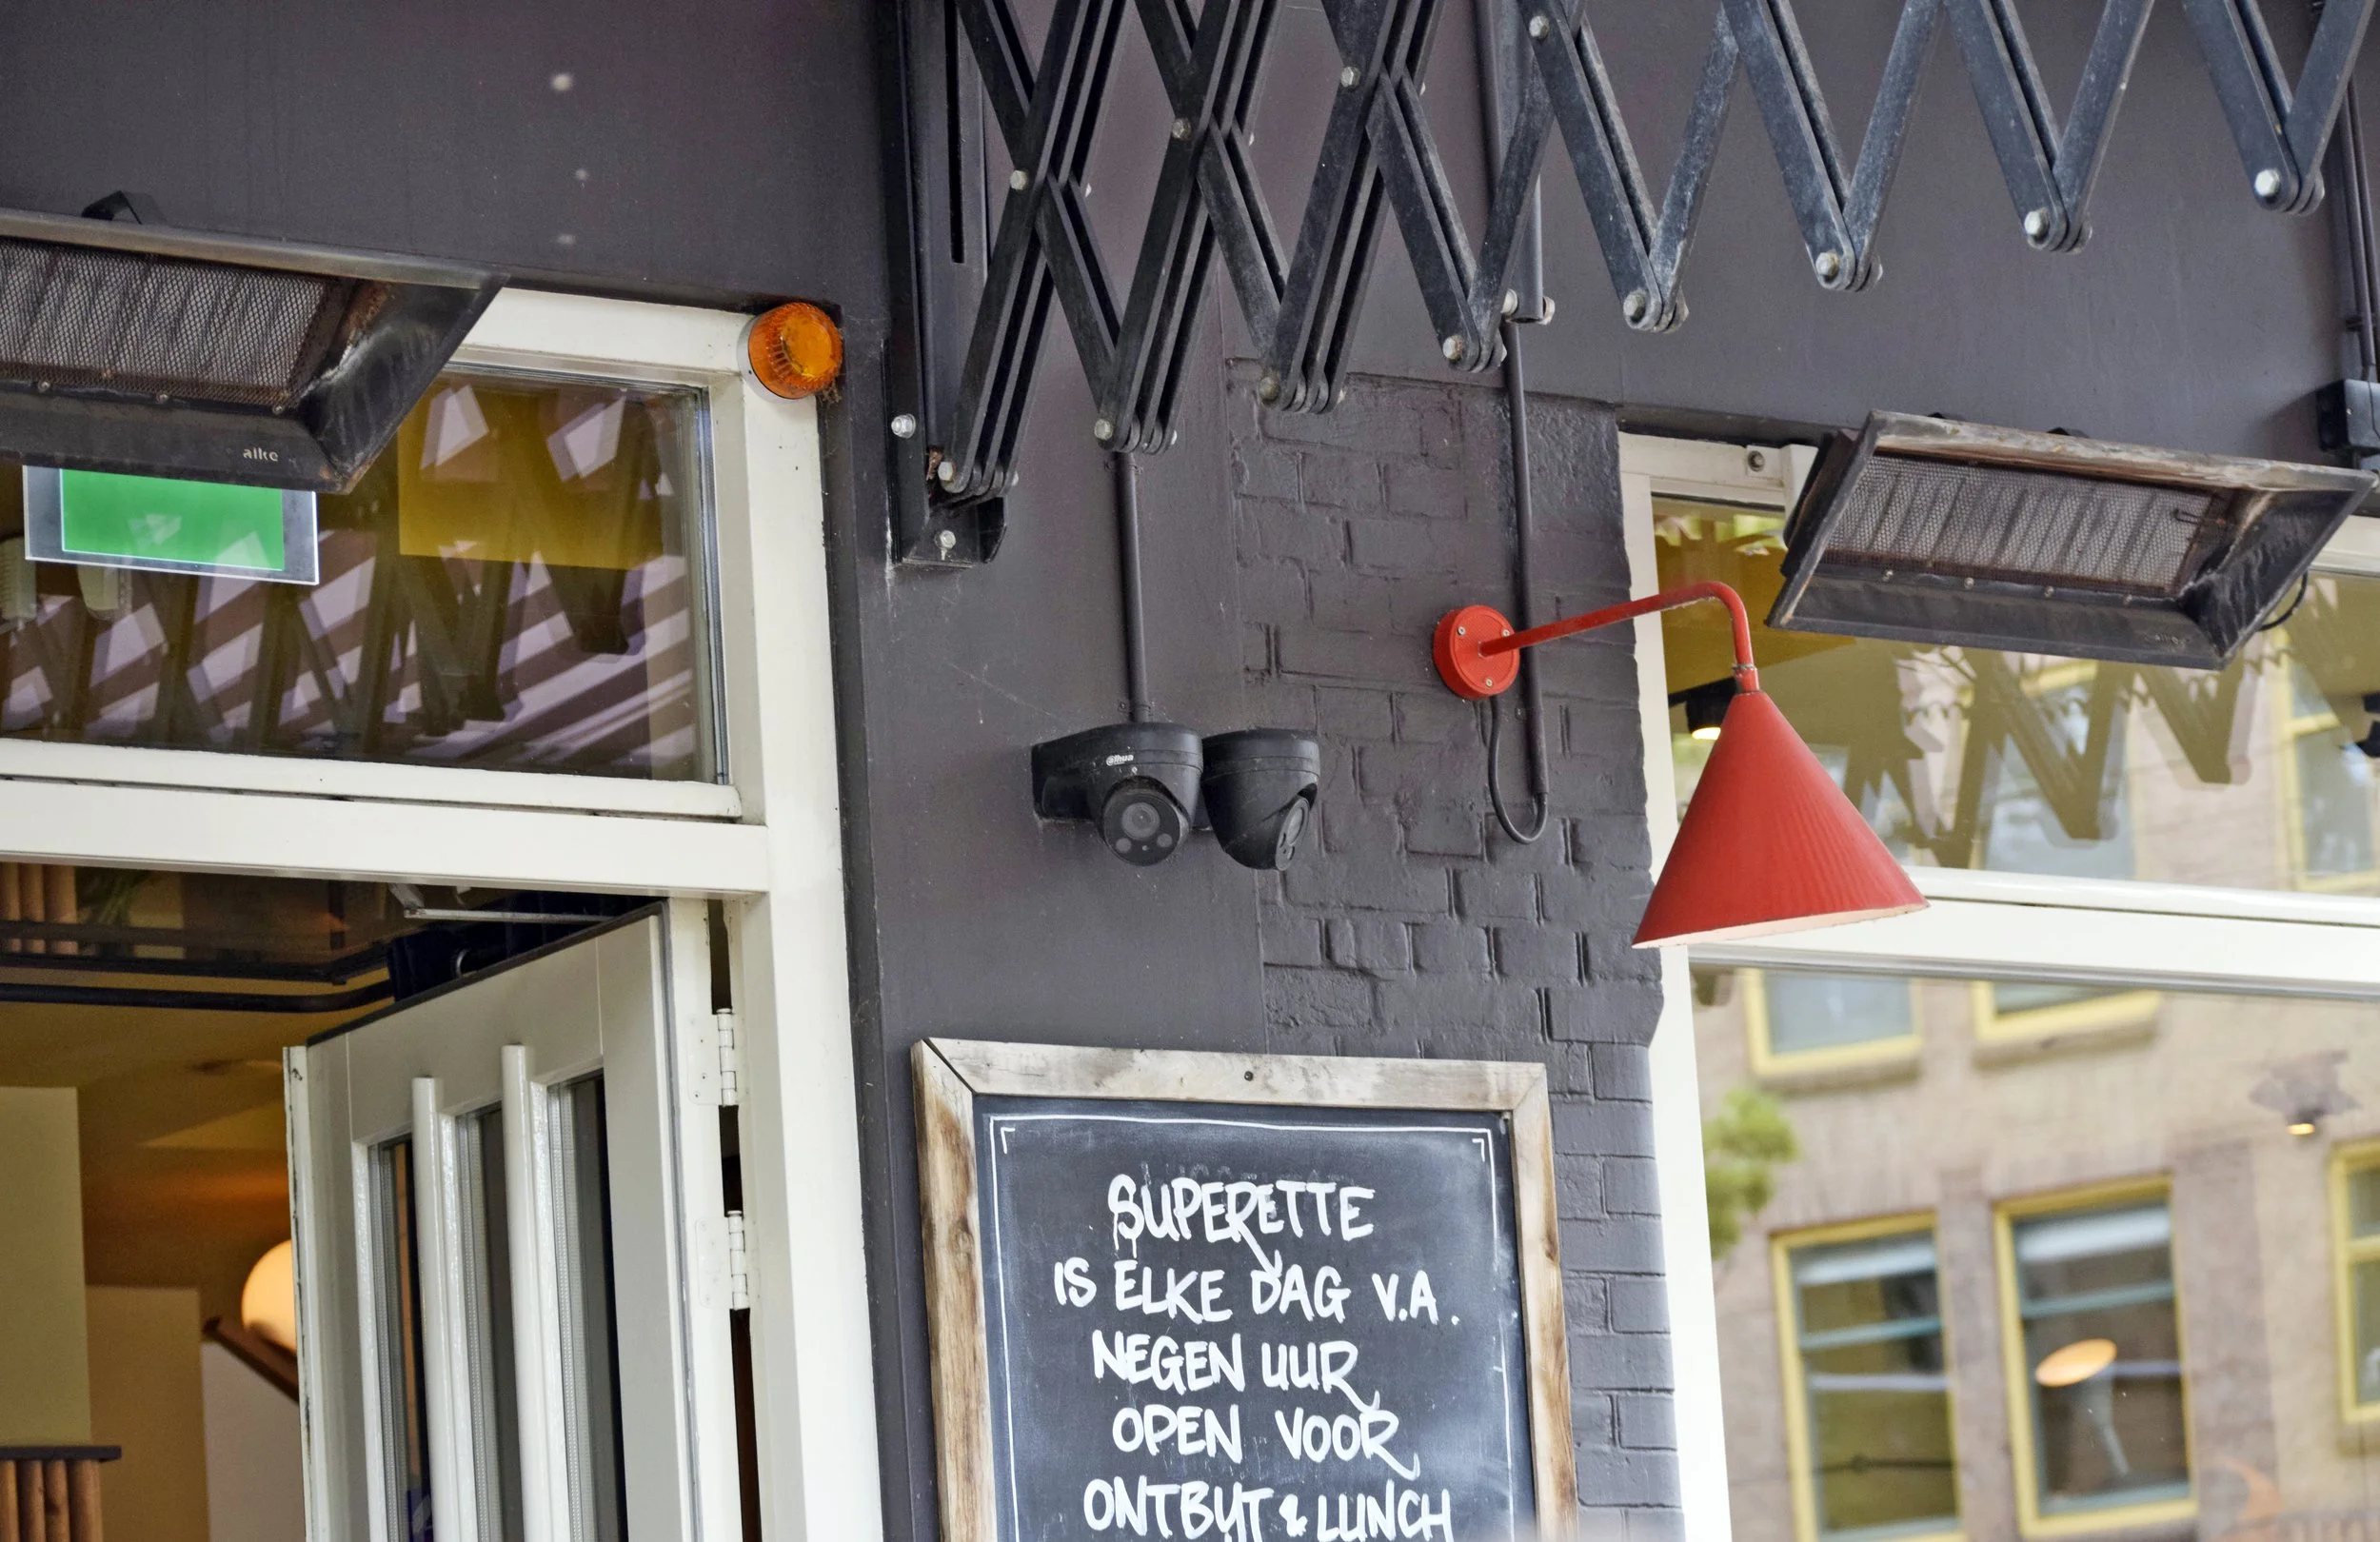 alke
alhua
SUPERETTE
IS ELKE DAG V.A.
NEGEN UUR
OPEN VOOR
ONTBYT & LUNCH